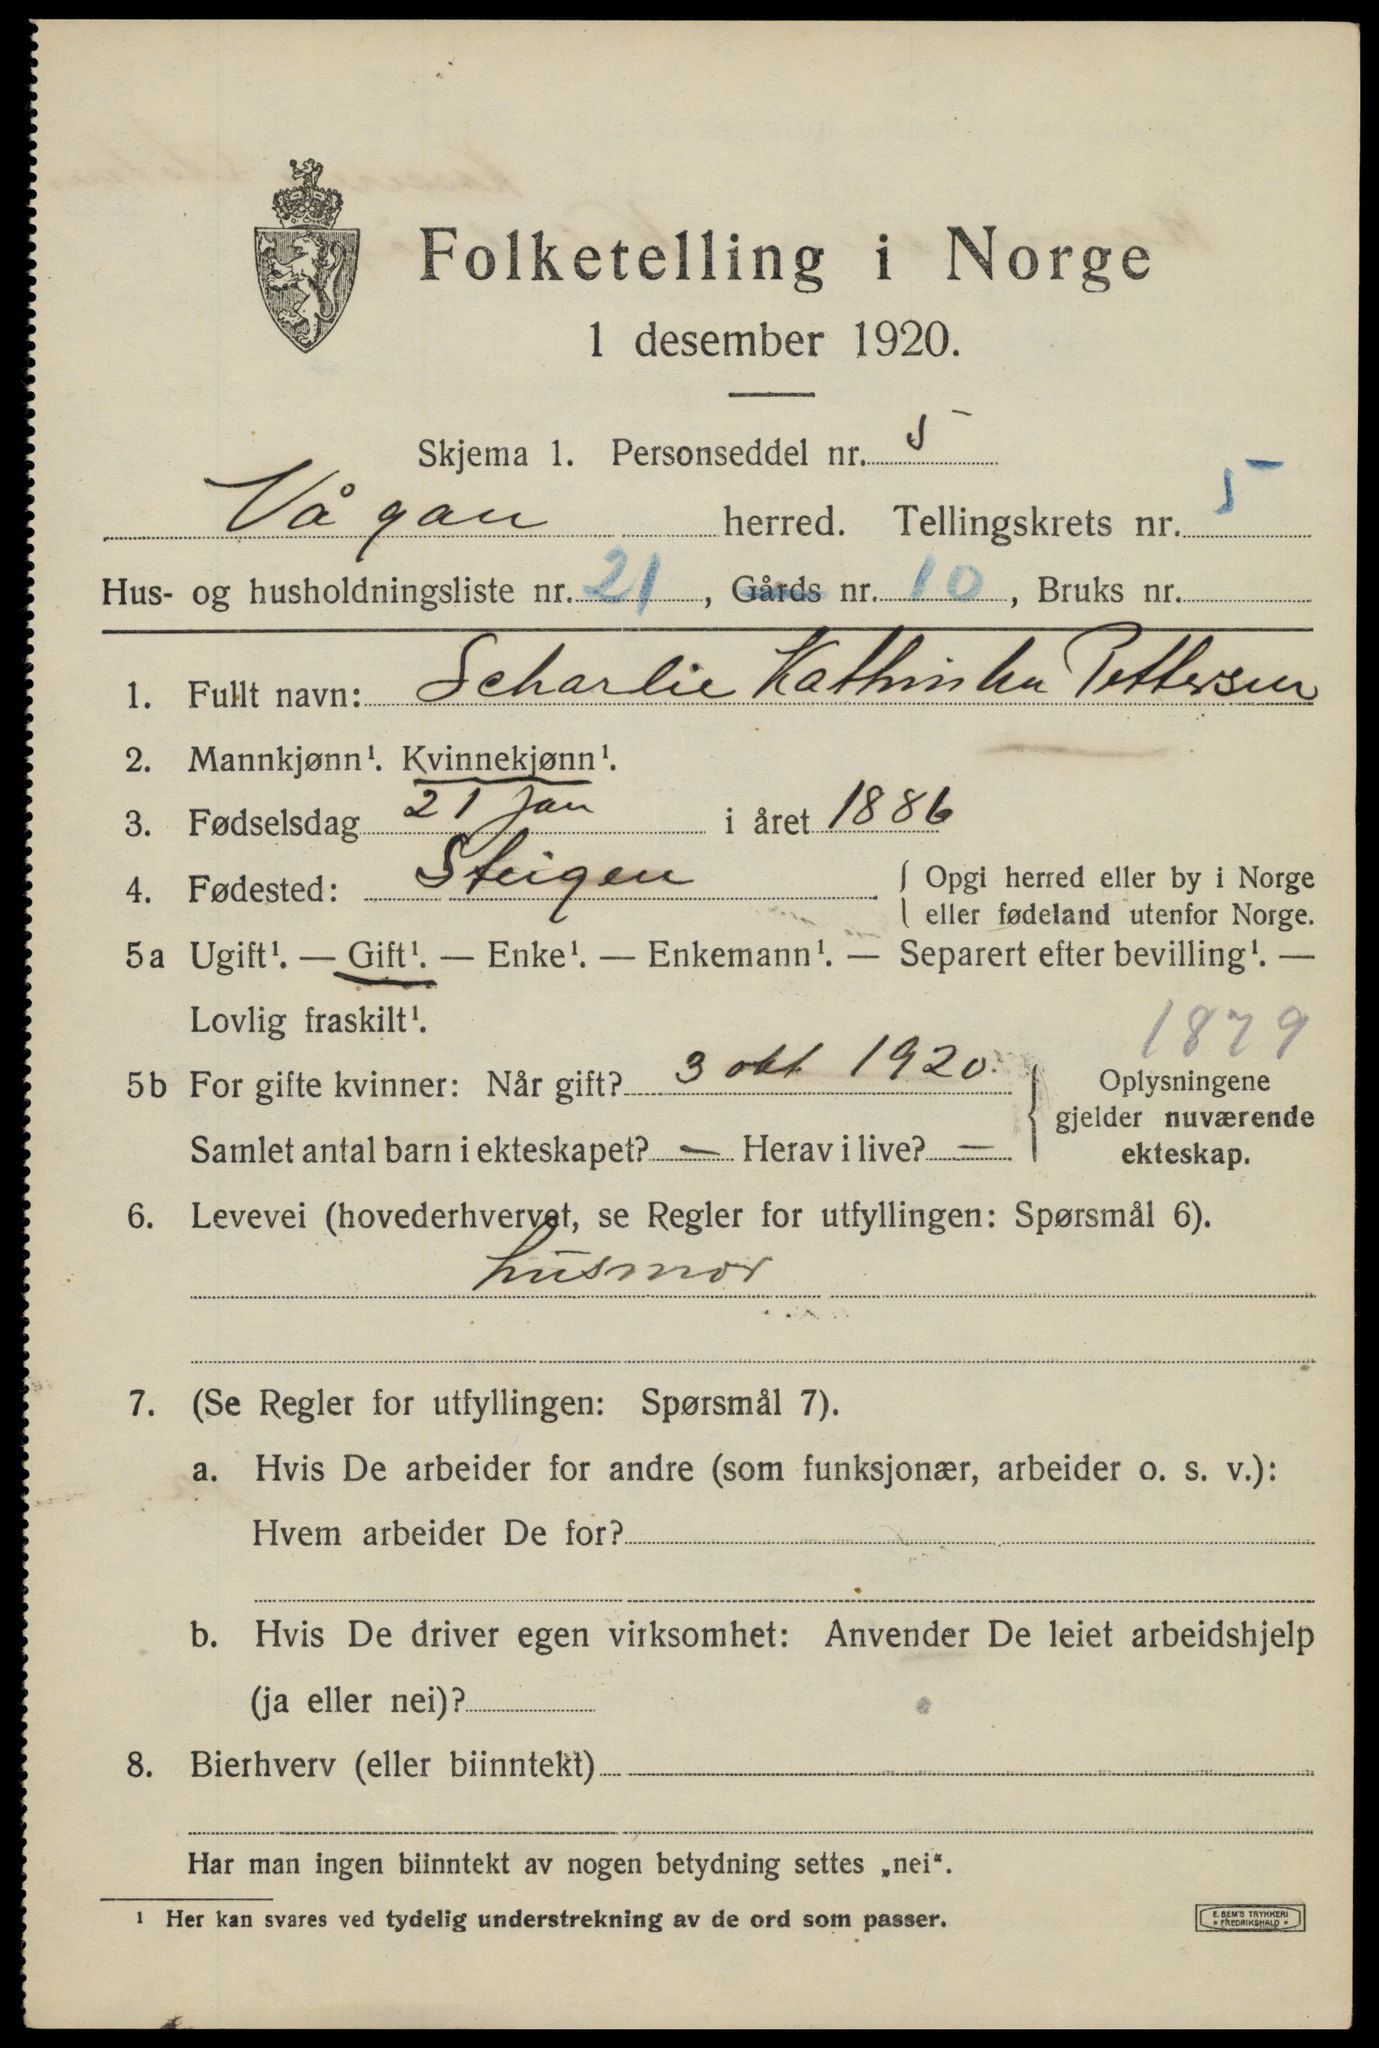 Folketelling i Norge
1 desember 1920.
Skjema 1. Personseddel nr. 5
Vågan herred. Tellingskrets nr. 5
Hus- og husholdningsliste nr. 21, Gårds nr. 10, Bruks nr.
1. Fullt navn: Scharlie Kathinka Pettersen
2. Mannkjønn¹. Kvinnekjønn¹.
3. Fødselsdag 21 Jan i året 1886
4. Fødested: Steigen { Opgi herred eller by i Norge
eller fødeland utenfor Norge.
5a Ugift¹. — Gift¹. — Enke¹. — Enkemann¹. — Separert efter bevilling¹. —
Lovlig fraskilt¹.
1879
5b For gifte kvinner: Når gift? 3 okt 1920. { Oplysningene
gjelder nuværende
Samlet antal barn i ekteskapet? — Herav i live? — ekteskap.
6. Levevei (hovederhvervet, se Regler for utfyllingen: Spørsmål 6).
husmor
7. (Se Regler for utfyllingen: Spørsmål 7).
a. Hvis De arbeider for andre (som funksjonær, arbeider o. s. v.):
Hvem arbeider De for?
b. Hvis De driver egen virksomhet: Anvender De leiet arbeidshjelp
(ja eller nei)?
8. Bierhverv (eller biinntekt)
Har man ingen biinntekt av nogen betydning settes „nei“.
¹ Her kan svares ved tydelig understrekning av de ord som passer.
E. SEM'S TRYKKERI
FREDRIKSHALD